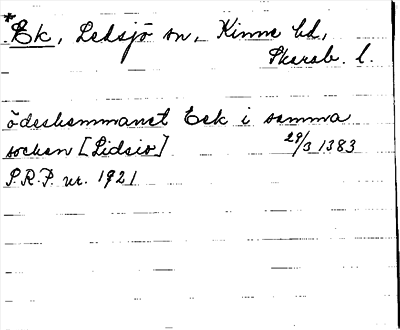 *Ek, Ledsjö sn, Kinne hd,
Skarab. l.
ödeshemmanet Eek i samma
socken [Lidsio] 29/3 1383
P.R.P. nr. 1921